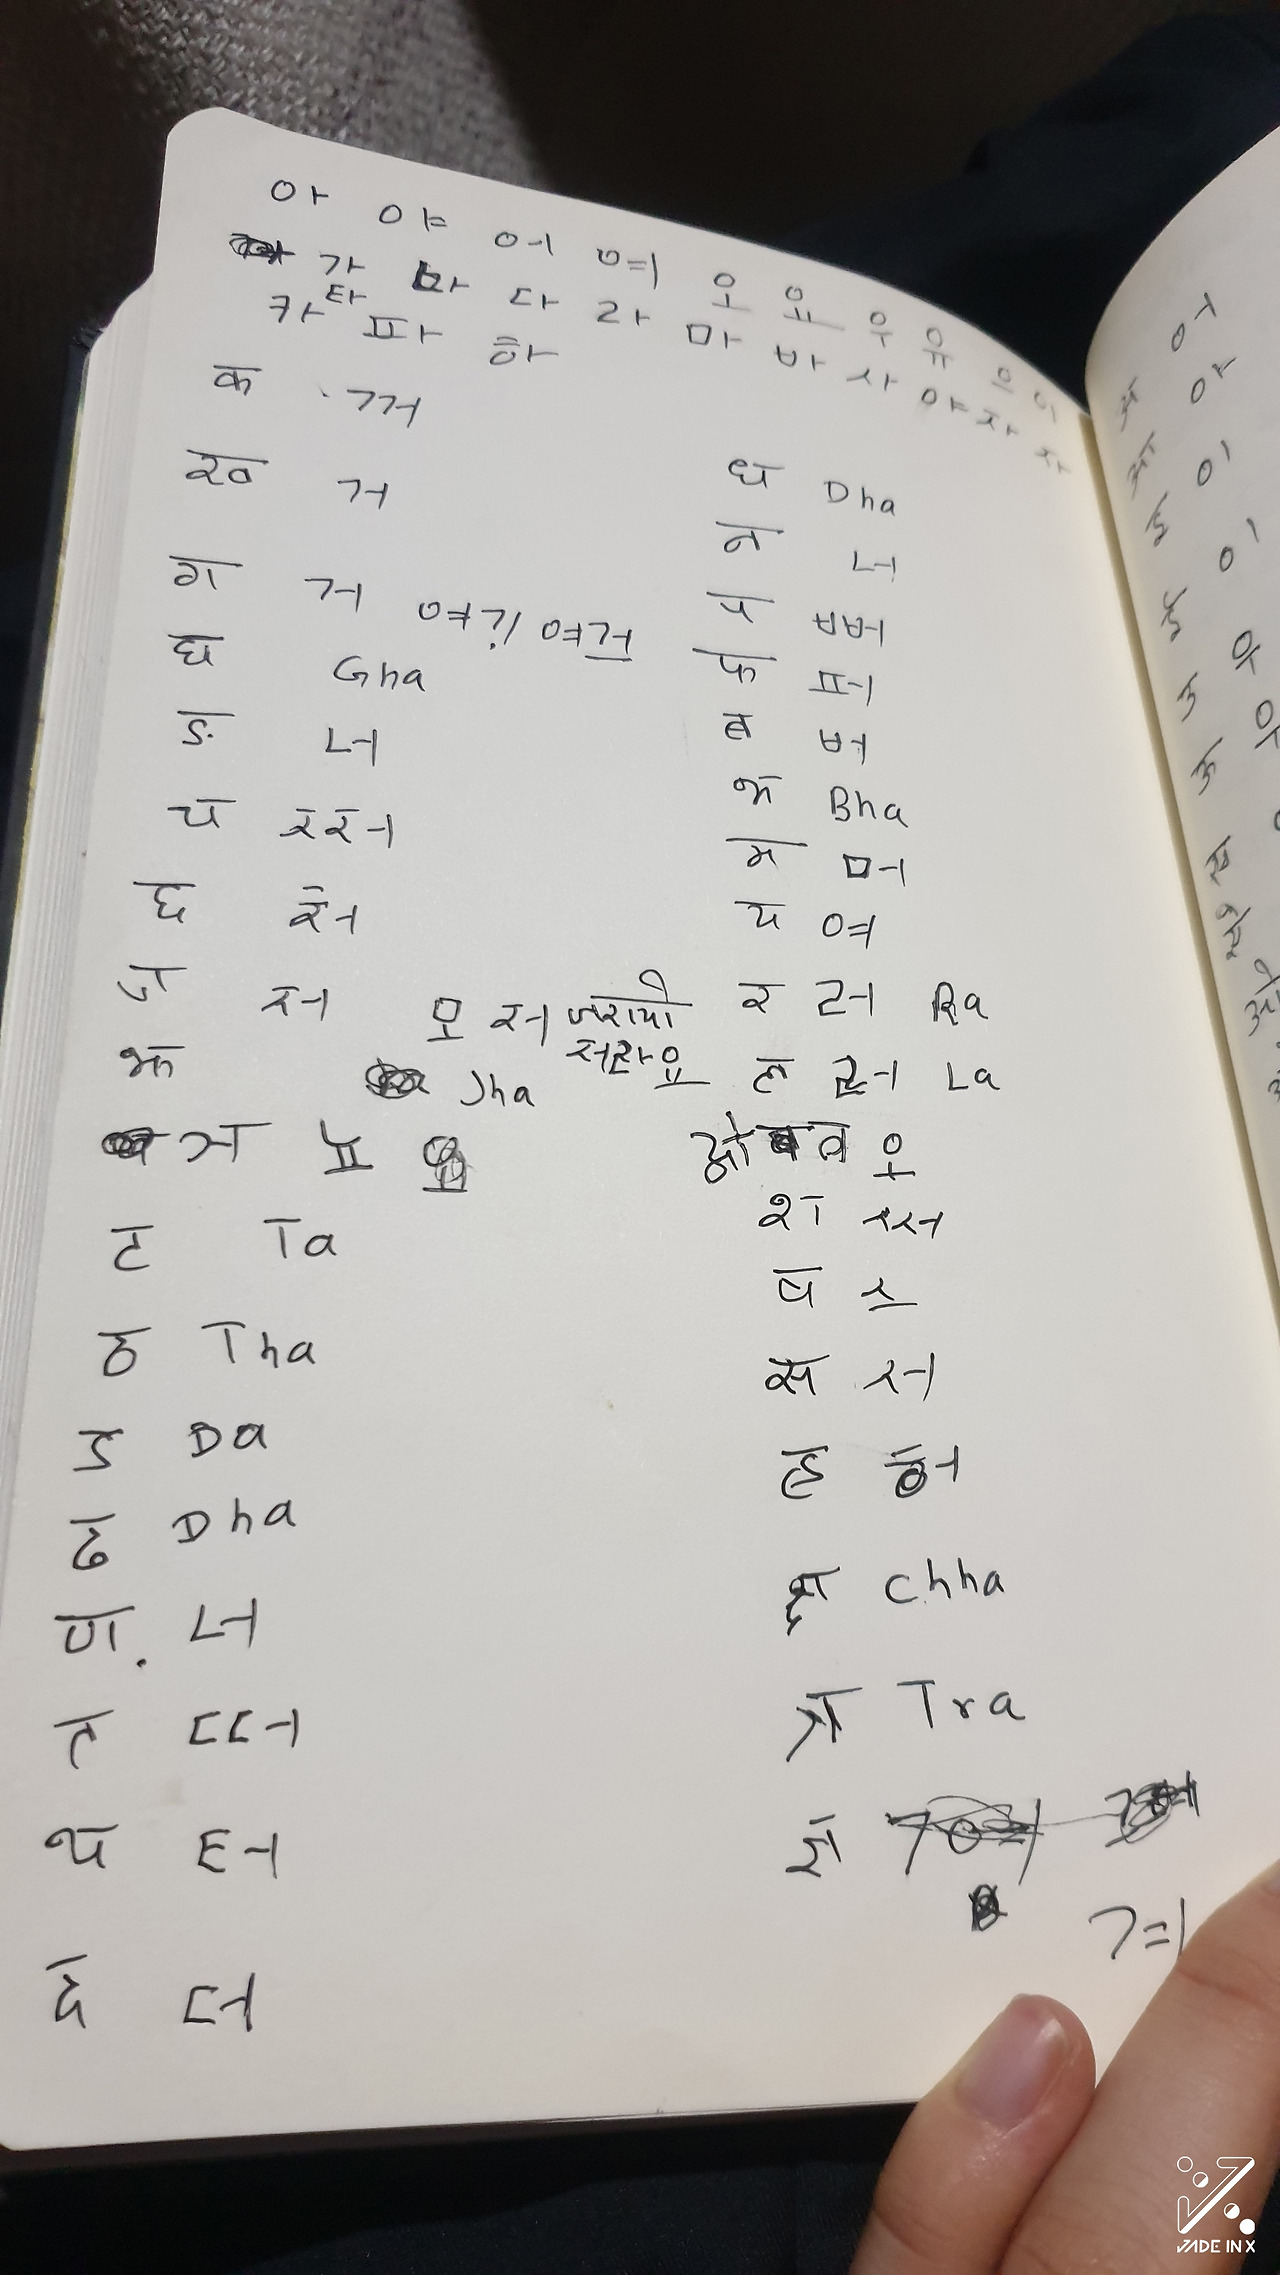 아 야 어 여 오 요 우 유 으 이
가 나 다 라 마 바 사 야 자 차
카 타 파 하
क 꺼
ख 거
ग 거
घ Gha
ङ 너
च 쩌
छ 처
ज 저 오 저 जरायो
저라요
झ Jha
ञ 뇨
ट Ta
ठ Tha
ड Da
ढ Dha
ण 너
त 떠
थ 터
द 더
ध Dha
न 너
प 뻐
फ 퍼
ब 버
भ Bha
म 머
य 여
र 러 Ra
ल 러 La
ओ व 오
श 써
ष 스
स 서
ह 허
क्ष Chha
त्र Tra
ज्ञ
겨
अ 어
आ 아
इ 이
ई 이
उ 우
ऊ 우
JADE IN X